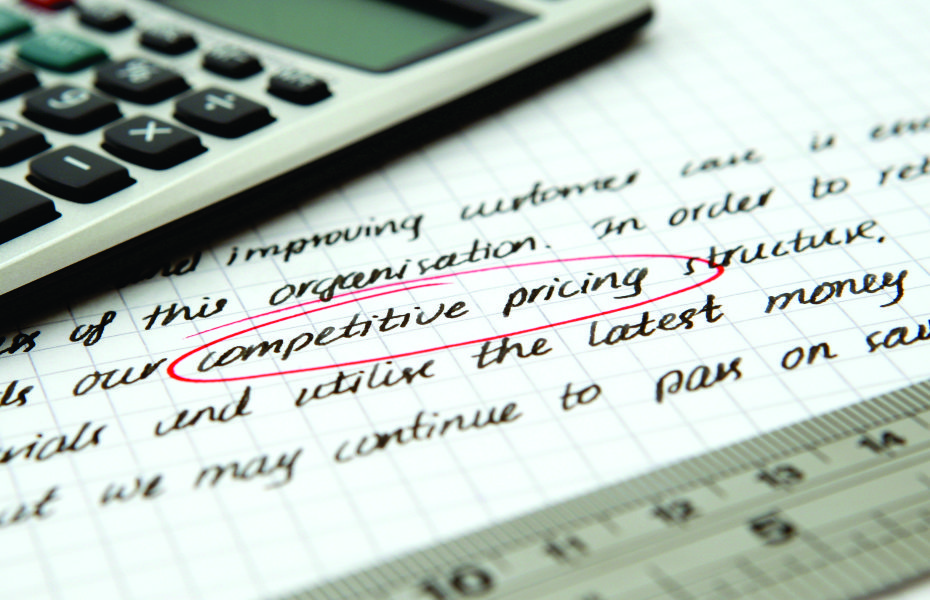 improving customer care is
of this organisation. In order to
our competitive pricing structure.
and utilise the latest money
we may continue to pass on
10 11 12 13 14
5
%
9
÷
×
−